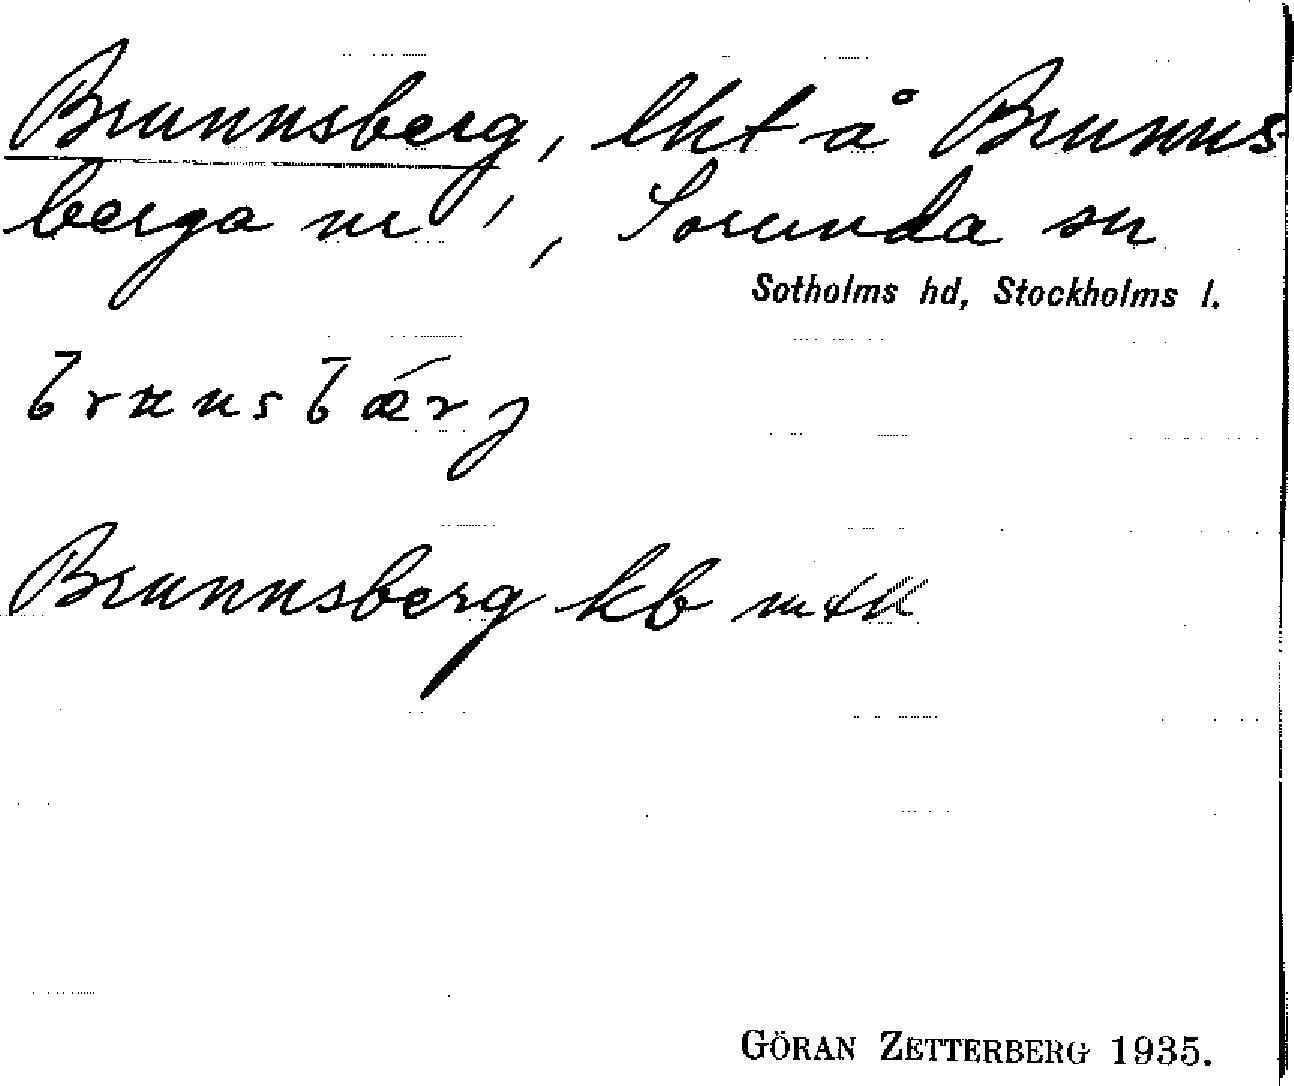 Brunnsberg, lht å Brunns
berga nr 1, Sorunda sn
Sotholms hd, Stockholms l.
Brunnsberg kb mtl
GÖRAN ZETTERBERG 1935.